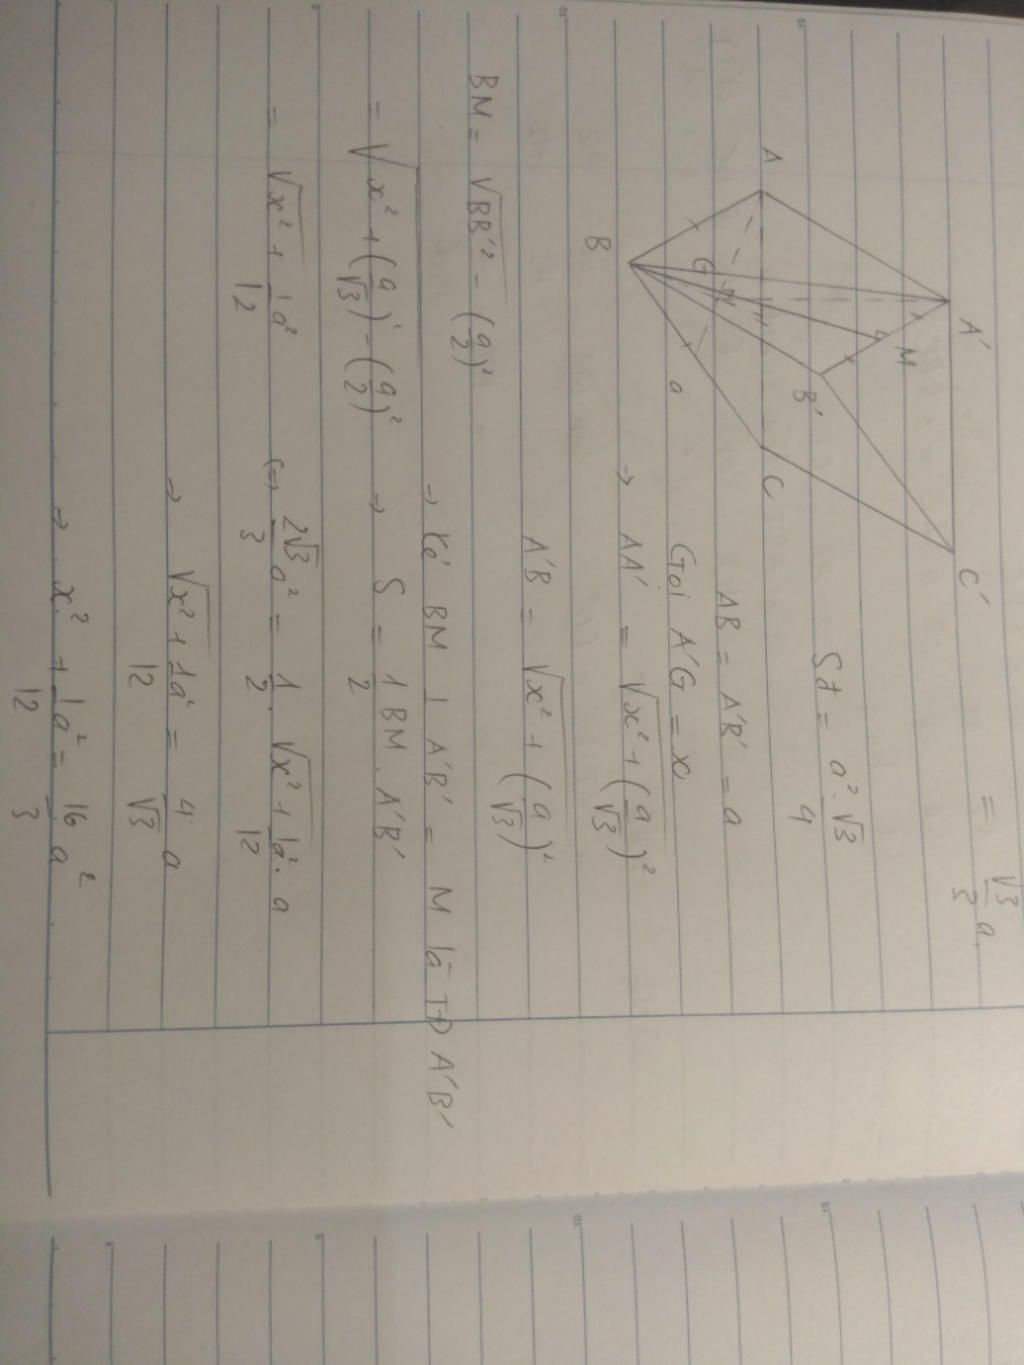 = √3/3 a
A'
M
B'
C'
A
G
H
B
a
C
Sđ = a² · √3/4
AB = A'B' = a
Gọi A'G = x
→ AA' = √(x² + (a/√3)²)
A'B = √(x² + (a/√3)²)
BM = √(BB'² - (a/2)²)
→ Kẻ BM ⊥ A'B' = M là TĐ A'B'
= √(x² + (a/√3)² - (a/2)²)
→ S = 1/2 BM . A'B'
= √(x² + 1/12 a²)
(=) 2√3/3 a² = 1/2 . √(x² + 1/12 a²) . a
→ √(x² + 1/12 a²) = 4/√3 a
→ x² + 1/12 a² = 16/3 a²